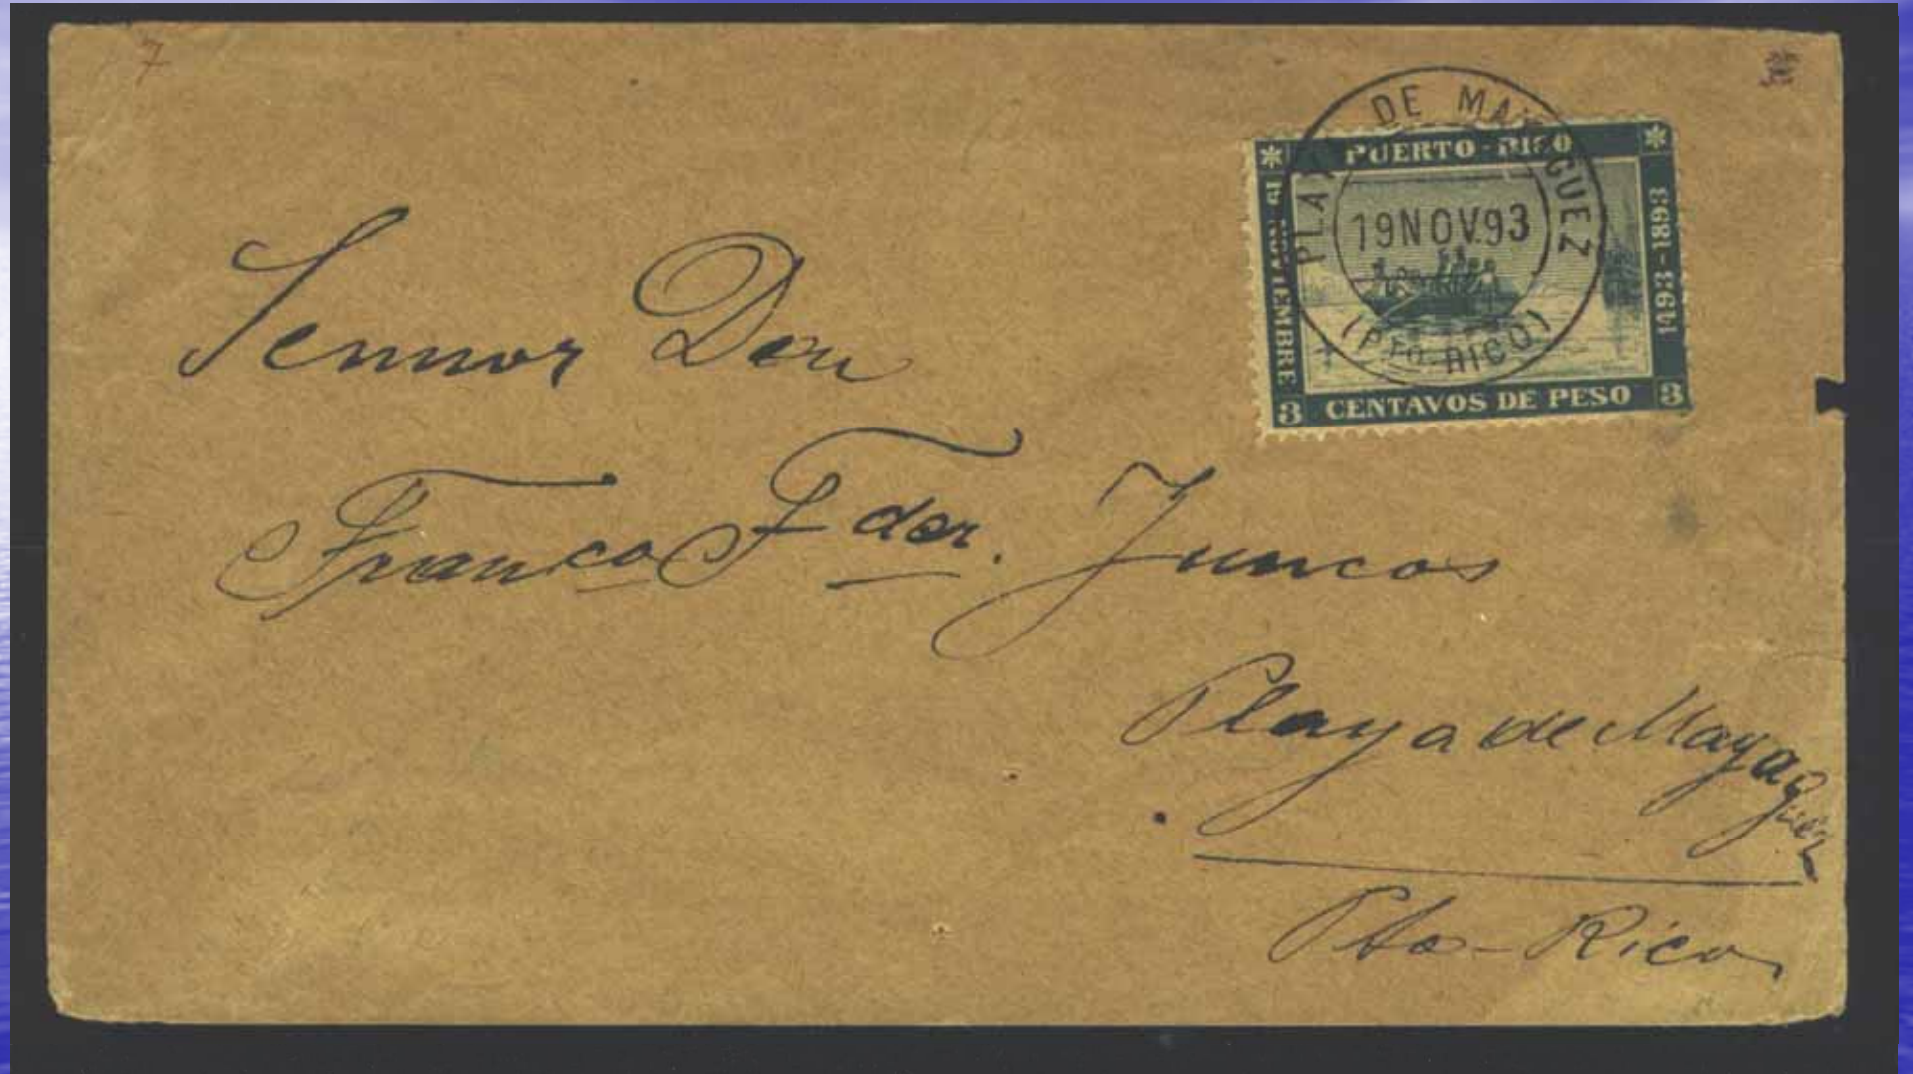 7
PLAYA DE MAYAGUEZ
19NOV.93
(PTO-RICO)
PUERTO-RICO
19 NOVIEMBRE
1493-1893
3 CENTAVOS DE PESO 3
Sennor Don
Franco Fder. Juncos
Playa de Mayaguez
Pto-Rico